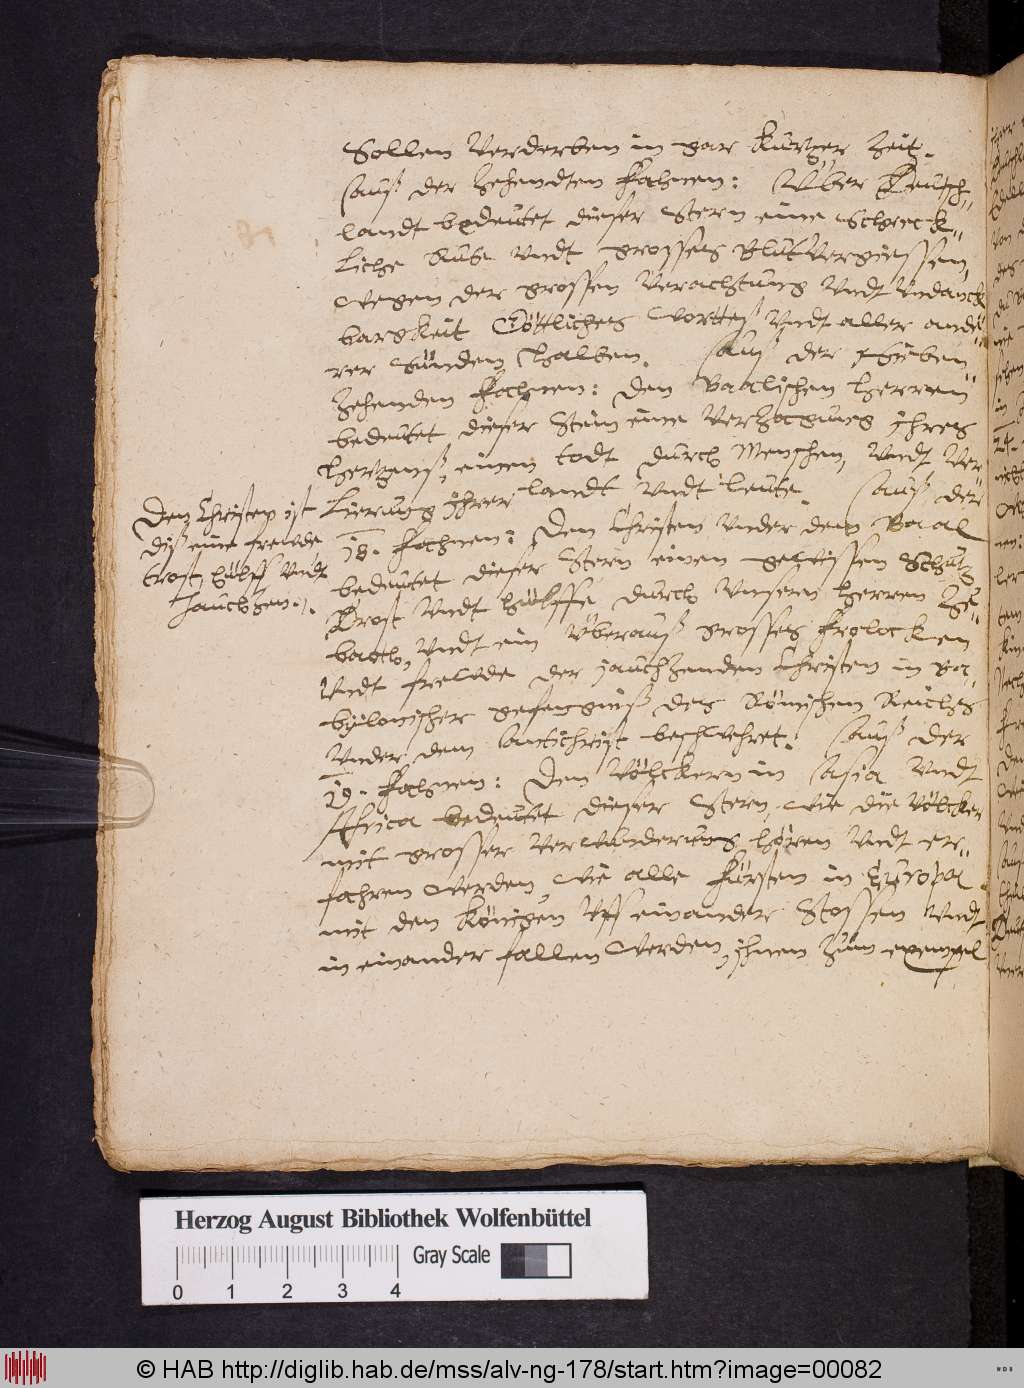 Sollen Verderben in gar kurtzer Zeit.
Auß der Zehendten Fahnen: Vber Teusch-
landt bedeutet dieser Stern eine Schreck-
liche Rute Vndt grosses BlutVergiessen,
wegen der grossen Verachtung Vndt Vndanck
barkeit Göttliches Worttes Vndt aller ande-
rer Sünden halben. Auß der Sieben-
Zehenden Fahnen: Den Baalischen Herren
bedeutet dieser Stern eine Verzagung Ihres
Hertzens, einen todt durch Menschen, Vndt Ver-
Lierung Ihrer landt Vndt leute. Auß der
18. Fahnen: Den Christen Vnder dem Baal
bedeutet dieser Stern einen gewissen Schutz
Trost Vndt hülffe durch Vnsern Herren Ze-
baoth, Vndt ein Vberauß grosses frolocken
Vndt frewde der jauchzenden Christen in Ba-
bylonischer gefengniß des Römischen Reiches
Vnder dem Antichrist beschwehret. Auß der
19. Fahnen: Den Völckern in Asia Vndt
Africa bedeutet dieser Stern, wie die Völcker
mit grosser Verwunderung hören Vndt er-
fahren werden, wie alle Fürsten in Europa
mit den Königen Vff einander Stossen Vndt
in einander fallen werden, ihnen zum exempel
Den Christen ist
diß eine frewde,
trost, hülff Vndt
Jauchzen.
Herzog August Bibliothek Wolfenbüttel
Gray Scale
0 1 2 3 4
© HAB http://diglib.hab.de/mss/alv-ng-178/start.htm?image=00082